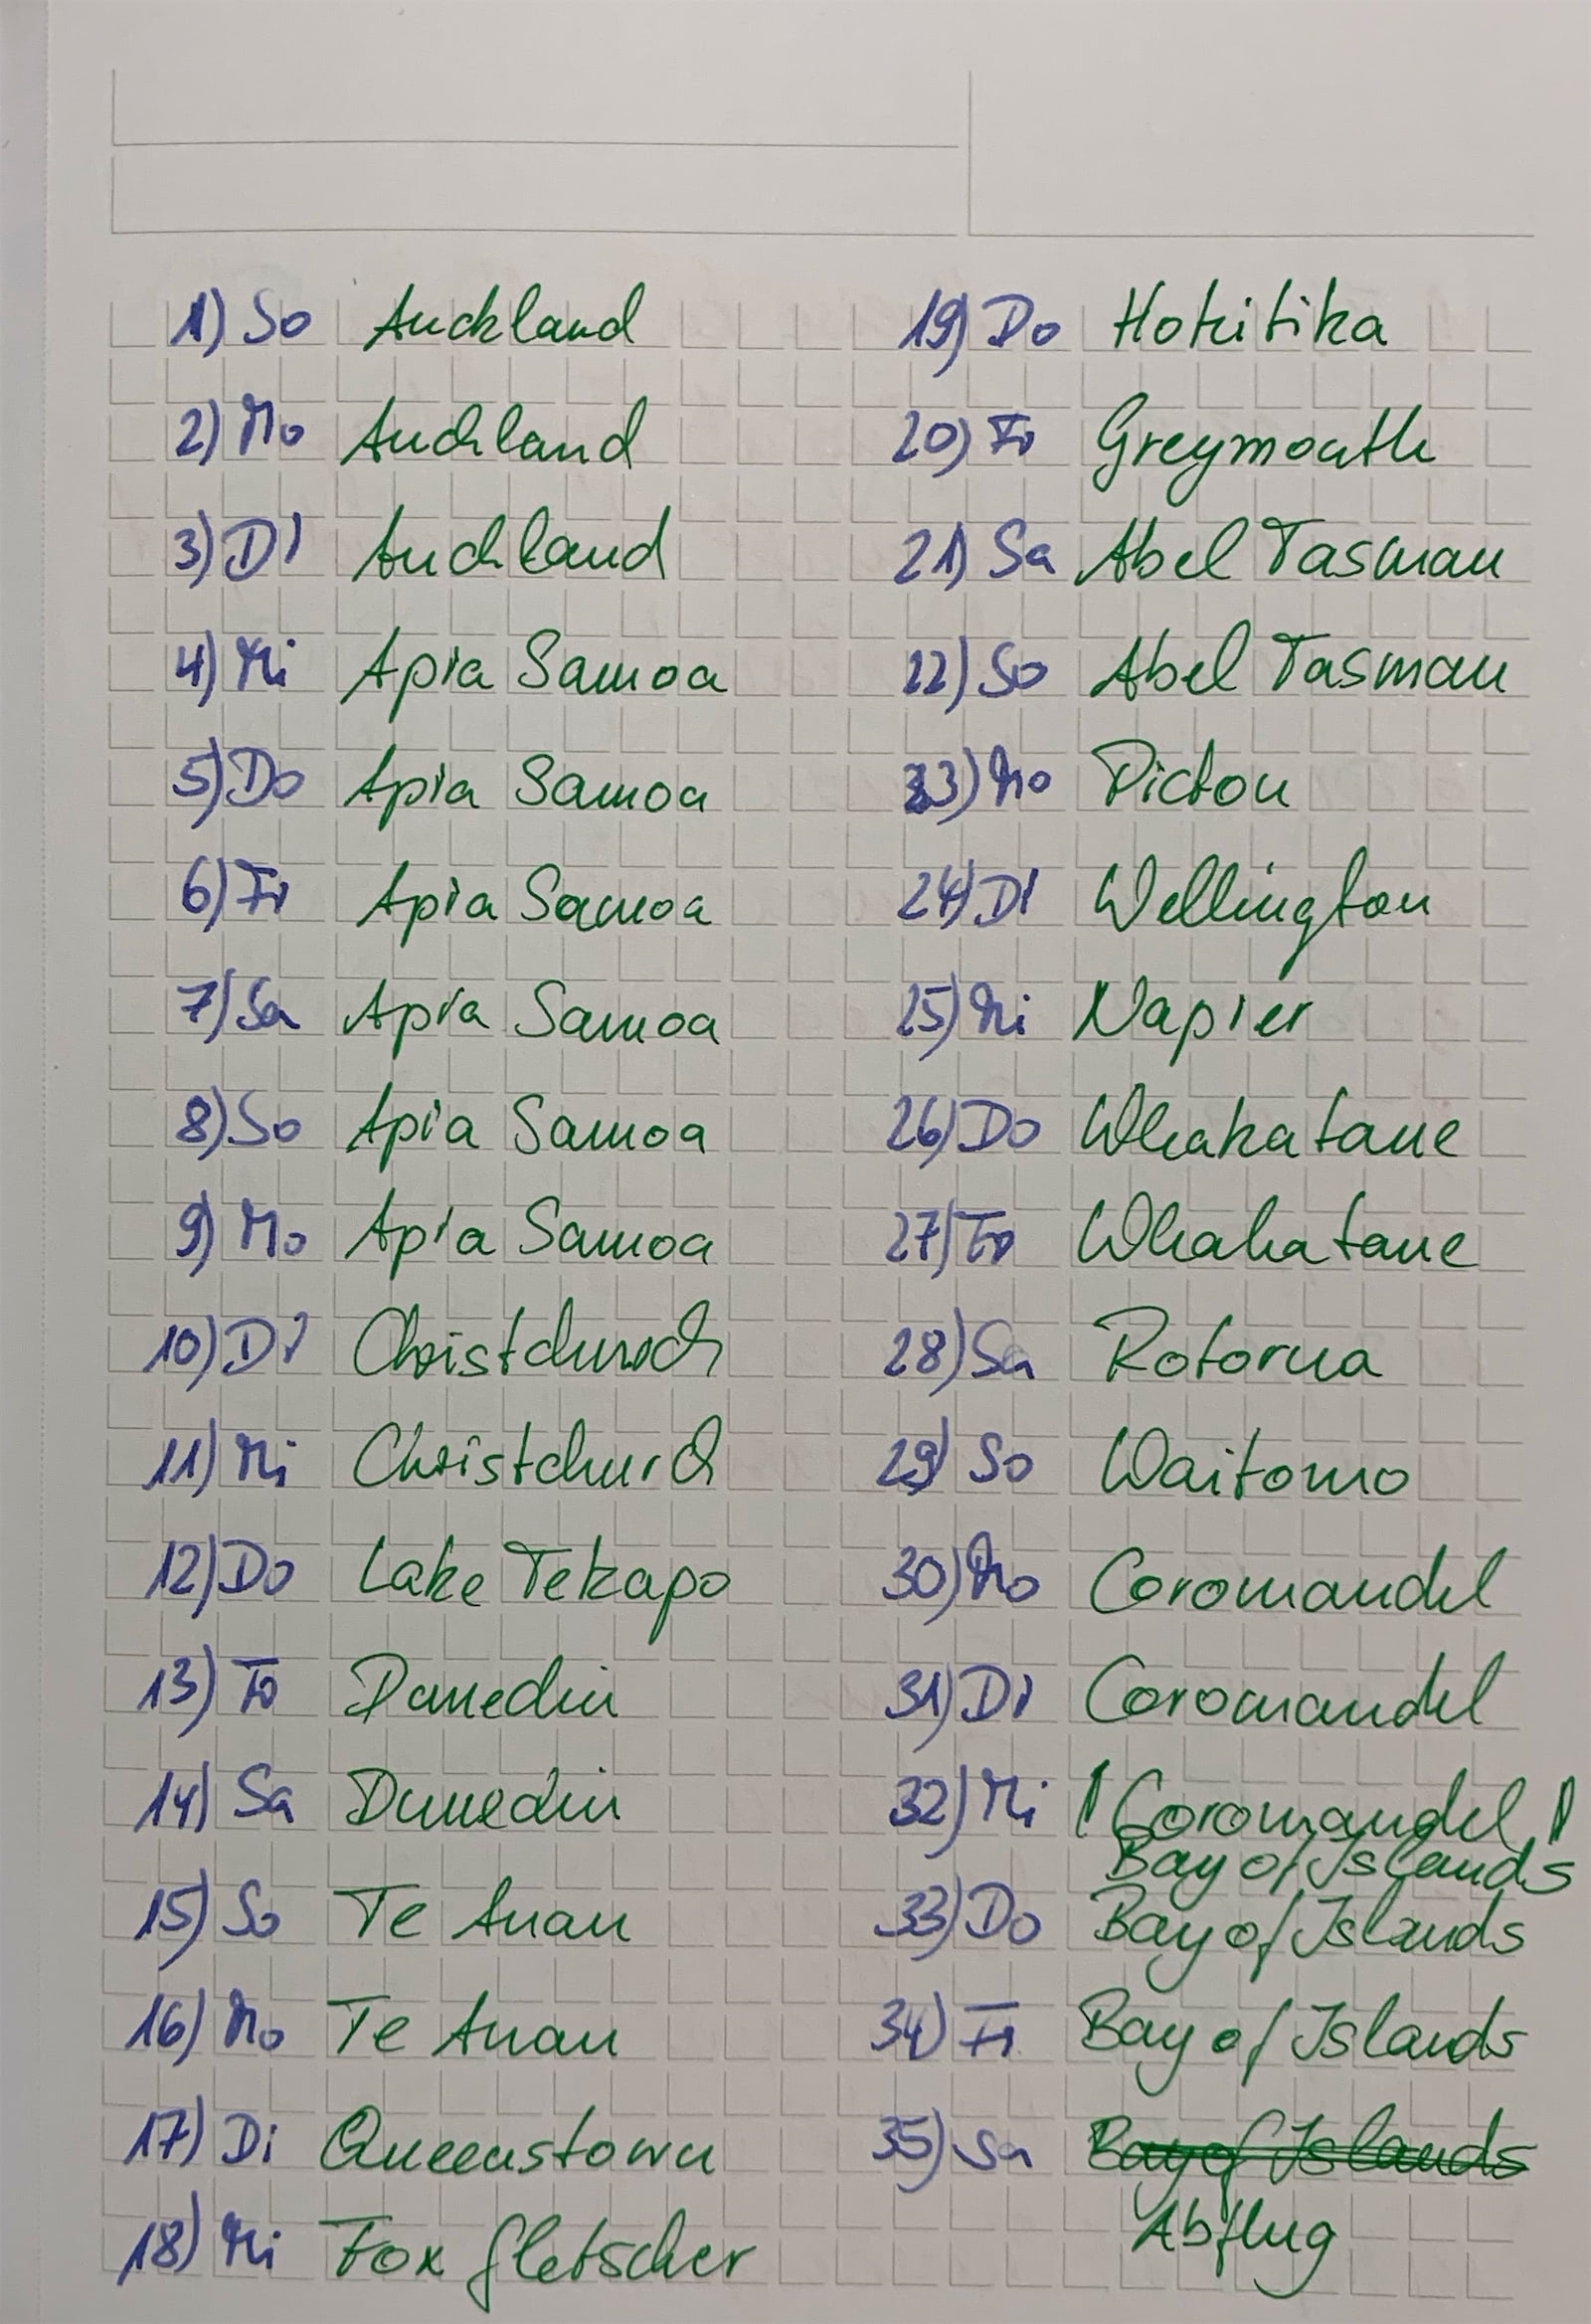 1) So Auckland
2) Mo Auckland
3) Di Auckland
4) Mi Apia Samoa
5) Do Apia Samoa
6) Fr Apia Samoa
7) Sa Apia Samoa
8) So Apia Samoa
9) Mo Apia Samoa
10) Di Christchurch
11) Mi Christchurch
12) Do Lake Tekapo
13) Fr Dunedin
14) Sa Dunedin
15) So Te Anau
16) Mo Te Anau
17) Di Queenstown
18) Mi Fox Gletscher
19) Do Hokitika
20) Fr Greymouth
21) Sa Abel Tasman
22) So Abel Tasman
23) Mo Picton
24) Di Wellington
25) Mi Napier
26) Do Whakatane
27) Fr Whakatane
28) Sa Rotorua
29) So Waitomo
30) Mo Coromandel
31) Di Coromandel
32) Mi (Coromandel)
Bay of Islands
33) Do Bay of Islands
34) Fr Bay of Islands
35) Sa Bay of Islands
Abflug